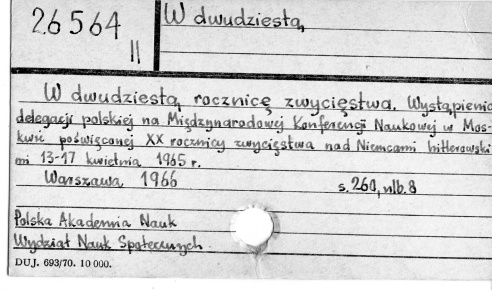 26564
II
W dwudziestą,
W dwudziestą rocznicę zwycięstwa. Wystąpienia
delegacji polskiej na Międzynarodowej Konferencji Naukowej w Mos-
kwie poświęconej XX rocznicy zwycięstwa nad Niemcami hitlerowski
mi 13-17 kwietnia 1965 r.
Warszawa 1966 s. 260, nlb. 8
Polska Akademia Nauk
Wydział Nauk Społecznych.
DUJ. 693/70. 10 000.